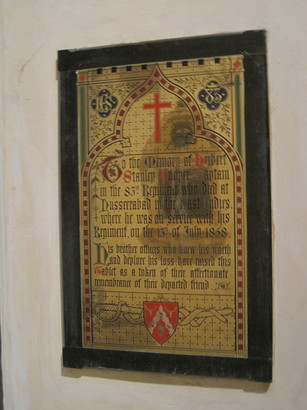 IHS
83
To the Memory of Hubert
Stanley Cooper, Captain
in the 83rd Regiment who died at
Nusseerabad in the East Indies,
where he was on service with his
Regiment, on the 15th of July 1858.
His brother officers who knew his worth
and deplore his loss have raised this
Tablet as a token of their affectionate
remembrance of their departed friend